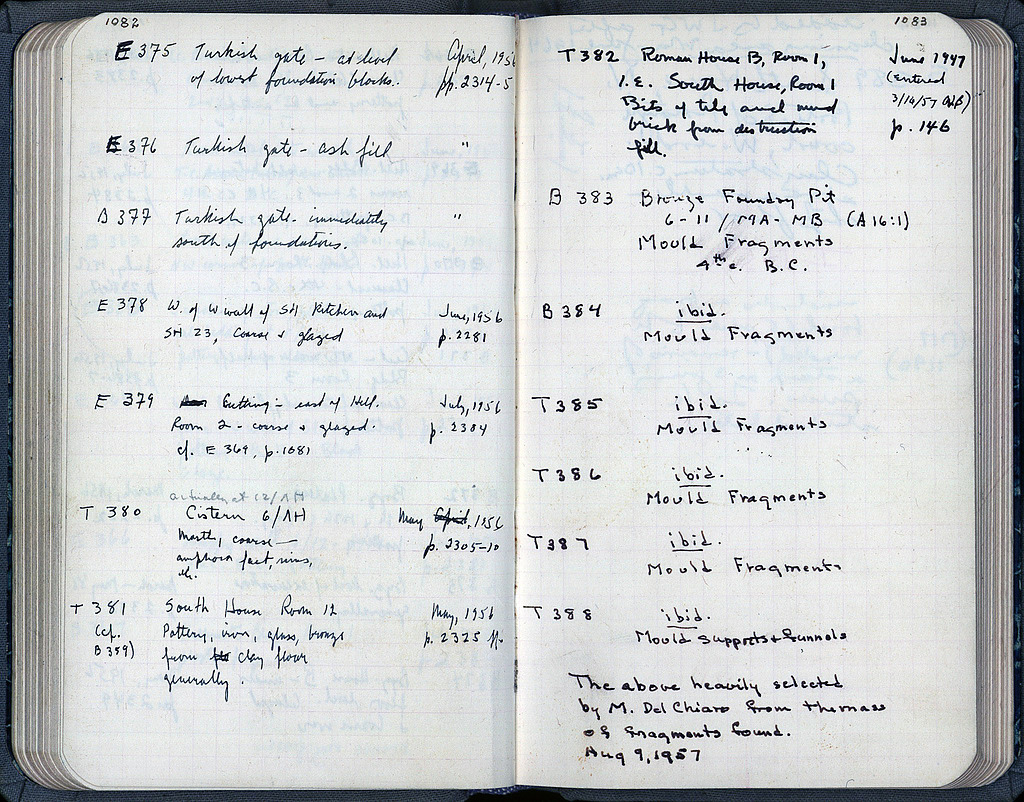 1082
E 375 Turkish gate – at level April, 1956
of lowest foundation blocks. pp. 2314-5
E 376 Turkish gate – ash fill "
B 377 Turkish gate – immediately "
south of foundations.
E 378 W. of W wall of SH Kitchen and June, 1956
SH 23, Coarse & glazed p. 2281
E 379 Cutting – east of Hell. July, 1956
Room 2 – coarse & glazed. p. 2304
cf. E 369, p. 1081
actually at 12/AH
T 380 Cistern 6/AH May April, 1956
Marth, coarse — p. 2305-10
amphora feet, rims,
etc.
T 381 South House Room 12 May, 1956
(cf. Pottery, iron, glass, bronze p. 2325 ff.
B 359) from clay floor
generally.
1083
T 382 Roman House B, Room 1, June 1947
I.E. South House, Room 1 (entered
Bits of tile and mud 3/16/57
brick from destruction p. 146
fill.
B 383 Bronze Foundry Pit
6-11 / MA-MB (A 16:1)
Mould Fragments
4th c. B.C.
B 384 ibid.
Mould Fragments
T 385 ibid.
Mould Fragments
T 386 ibid.
Mould Fragments
T 387 ibid.
Mould Fragments
T 388 ibid.
Mould supports & funnels
The above heavily selected
by M. Del Chiaro from the mass
of fragments found.
Aug 9, 1957